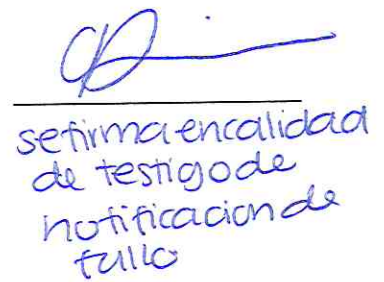 se firma en calidad
de testigo de
notificacion de
fallo